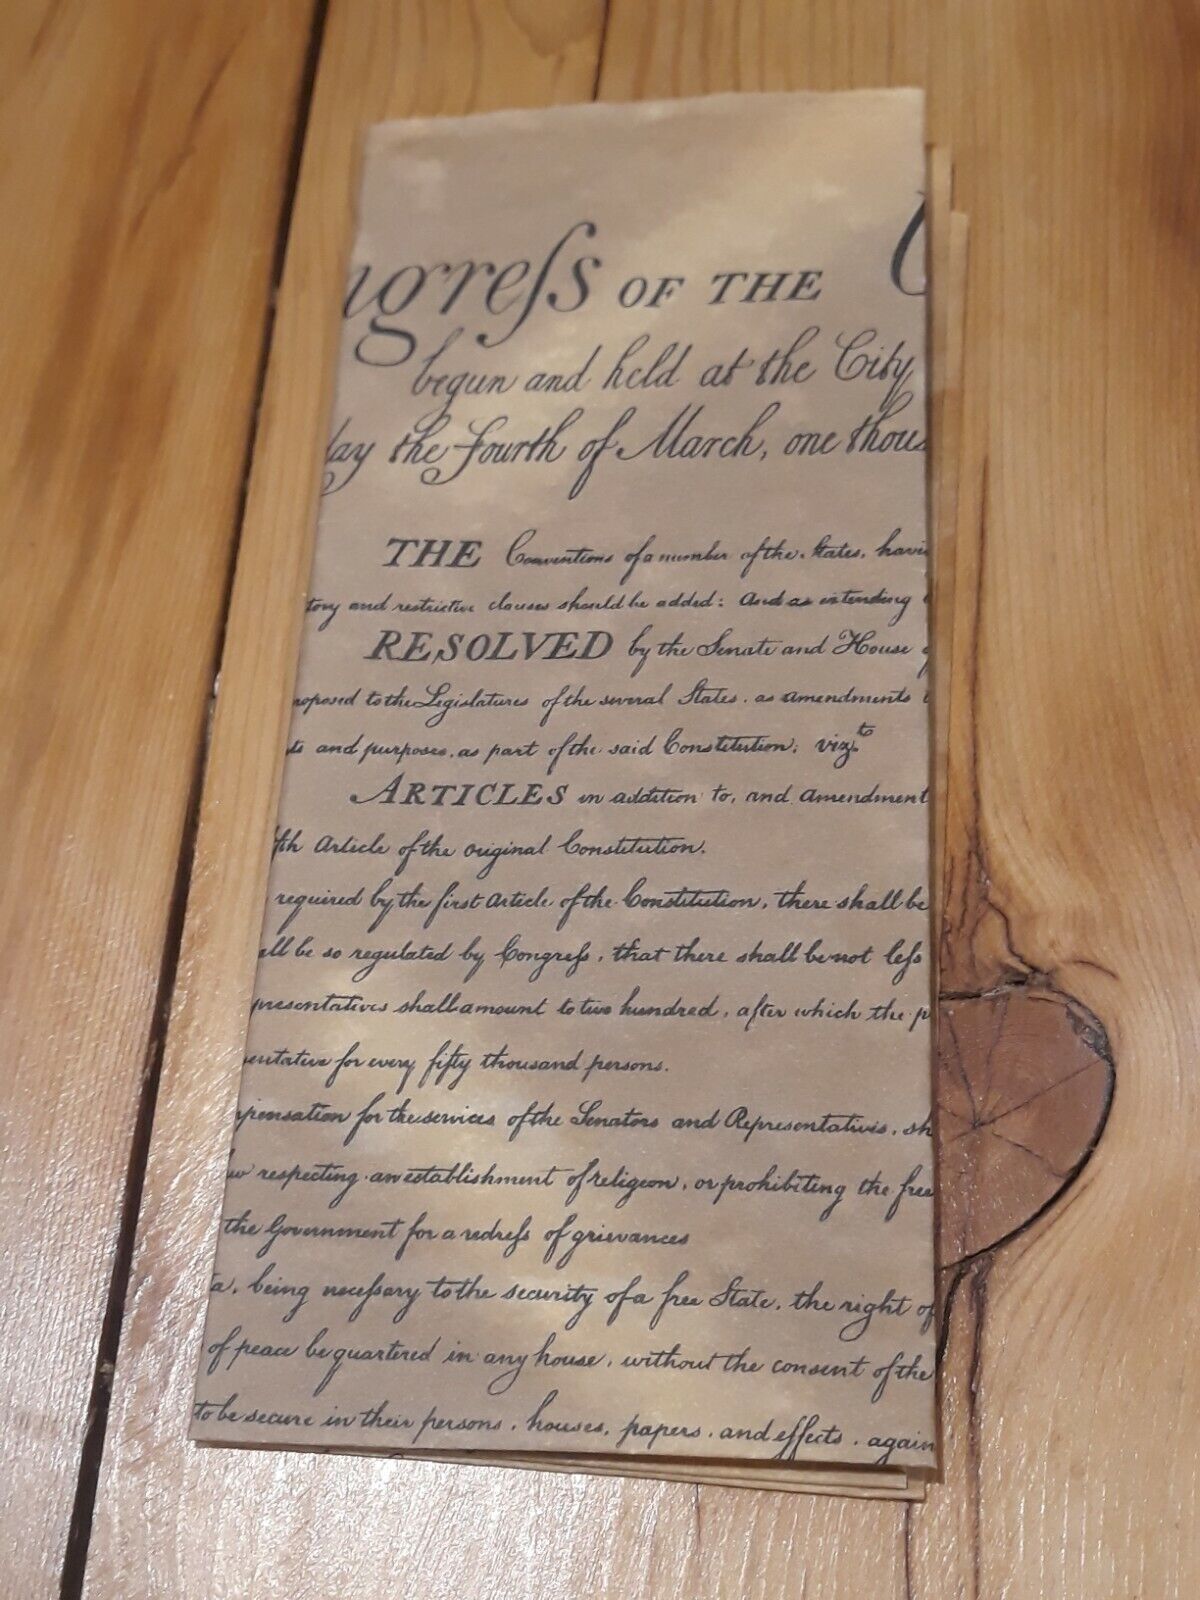 ngreſs OF THE
begun and held at the City
day the Fourth of March, one thous
THE Conventions of a number of the States, havin
tory and restrictive clauses should be added: And as extending
RESOLVED by the Senate and House
roposed to the Legislatures of the several States, as amendments
ts and purposes, as part of the said Constitution; vizt.
ARTICLES in addition to, and amendment
fth Article of the original Constitution.
required by the first Article of the Constitution, there shall be
all be so regulated by Congreſs, that there shall be not leſs
presentatives shall amount to two hundred, after which the p
sentative for every fifty thousand persons.
mpensation for the services of the Senators and Representatives, sh
aw respecting an establishment of religion, or prohibiting the free
the Government for a redreſs of grievances
ia, being neceſsary to the security of a free State, the right of
of peace be quartered in any house, without the consent of the
to be secure in their persons, houses, papers, and effects, again